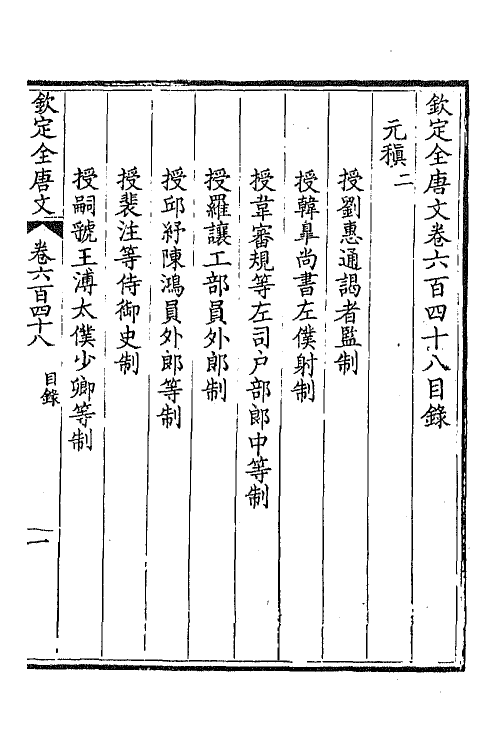 欽定全唐文卷六百四十八目錄
元稹二
授劉惠通謁者監制
授韓臯尚書左僕射制
授韋審規等左司户部郎中等制
授羅讓工部員外郎制
授邱紓陳鴻員外郎等制
授裴注等侍御史制
授嗣虢王溥太僕少卿等制
欽定全唐文
卷六百四十八
目錄
一